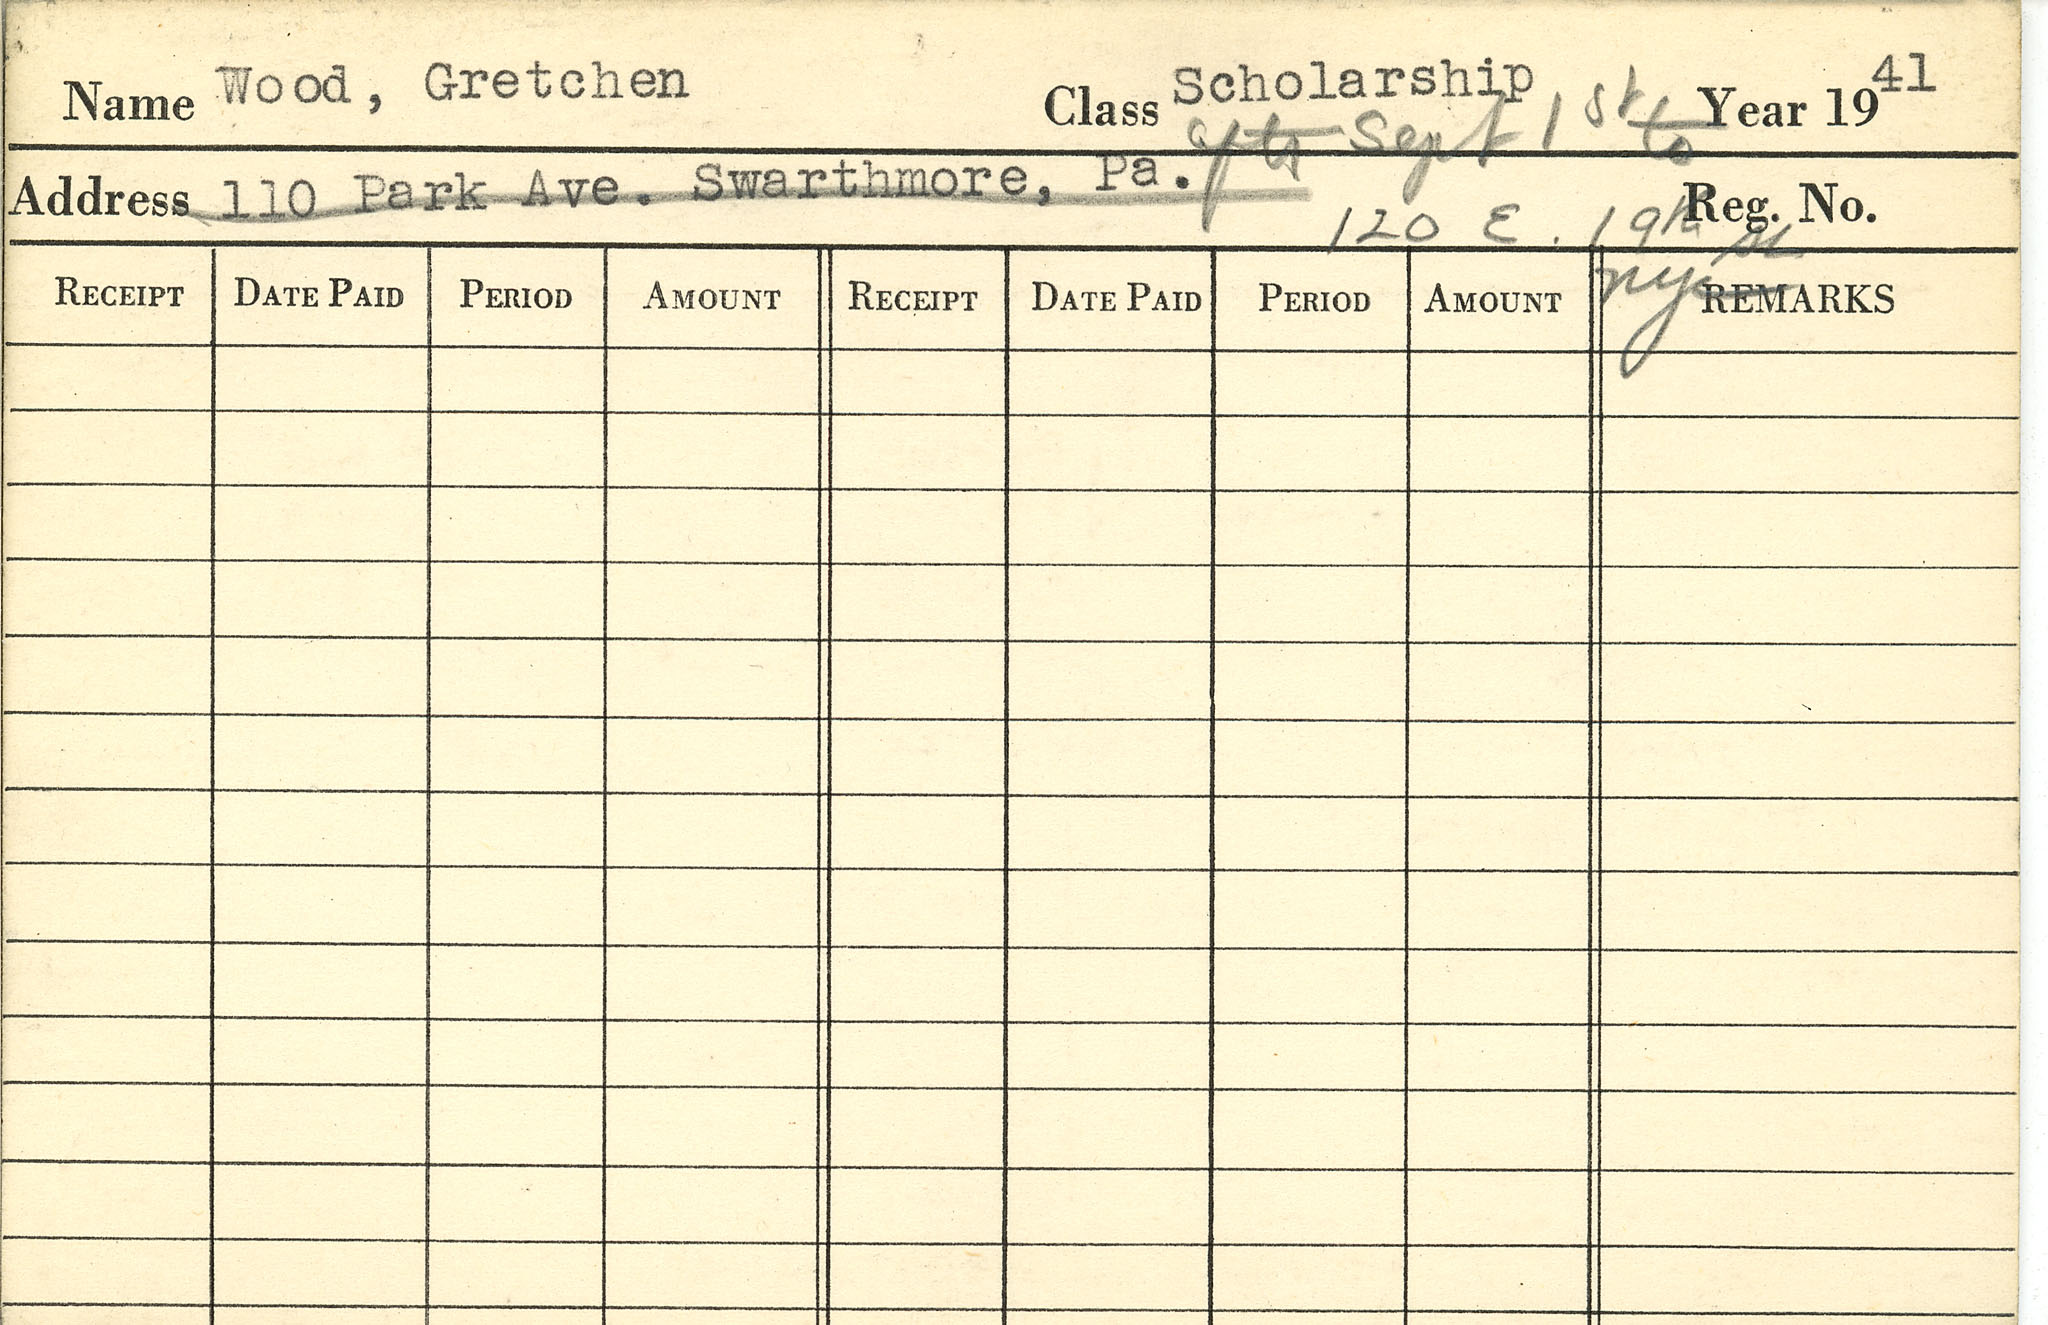 Name Wood, Gretchen Class Scholarship Year 1941
after Sept 1st to
Address 110 Park Ave. Swarthmore, Pa. Reg. No.
120 E. 19th St
nyc
RECEIPT DATE PAID PERIOD AMOUNT RECEIPT DATE PAID PERIOD AMOUNT REMARKS